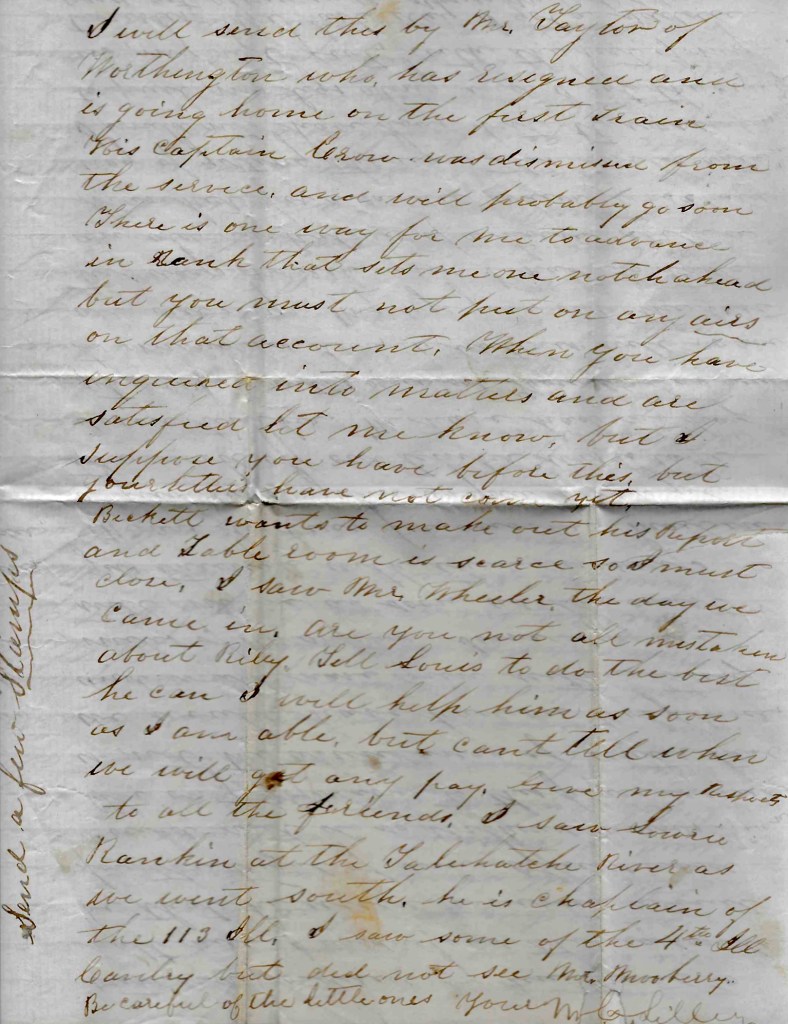 I will send this by Mr. Taylor of
Worthington who, has resigned and
is going home on the first train
His Captain Crow was dismissed from
the service, and will probably go soon
There is one way for me to advance
in Rank that sets me one notch ahead
but you must not put on any airs
on that account. When you have
inquired into matters and are
satisfied let me know, but I
suppose you have before this, but
your letters have not come yet.
Beckett wants to make out his Report
and Table room is scarce so I must
close. I saw Mr. Wheeler the day we
came in. are you not all mistaken
about Riley. Tell Louis to do the best
he can I will help him as soon
as I am able. but cant tell when
we will get any pay. Give my Respects
to all the friends. I saw Lowrie
Rankin at the Talehatche River as
we went south. he is chaplain of
the 113 Ill. I saw some of the 4th Ill
Cavalry but did not see Mr.
Be careful of the little ones Your
Send a few Stamps